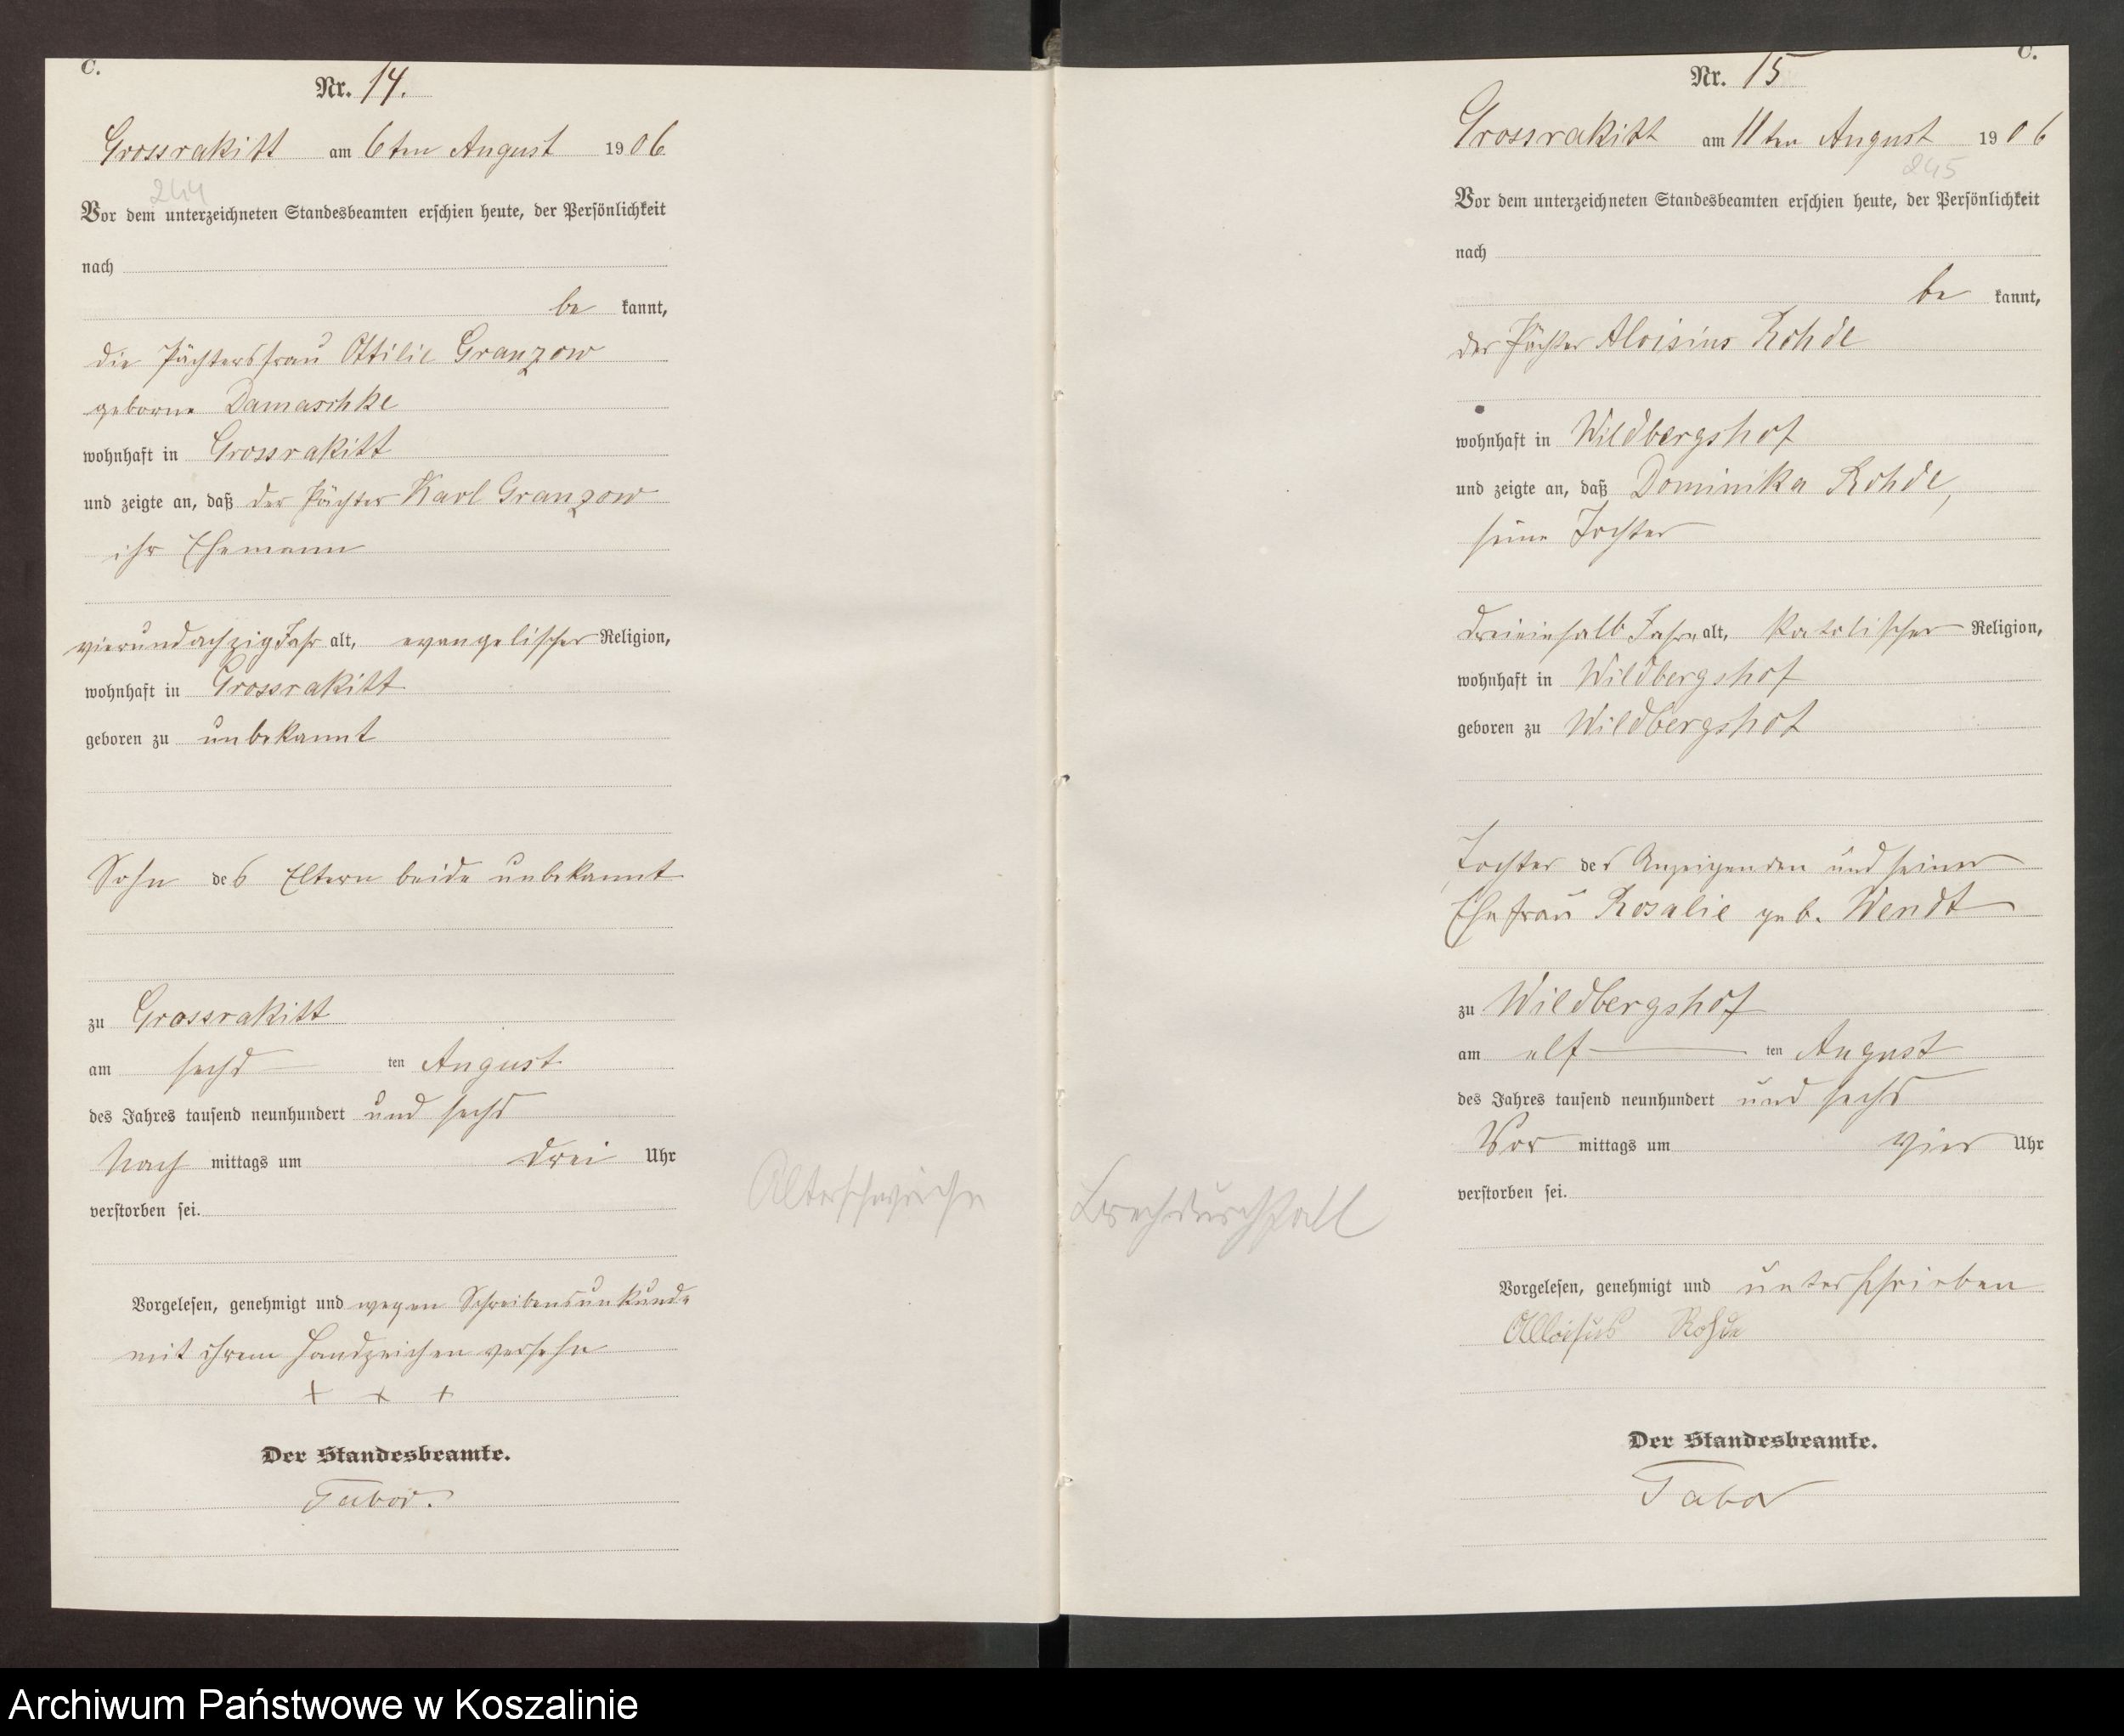 C.
Nr. 14.
Grossrakitt am 6ten August 1906
244
Vor dem unterzeichneten Standesbeamten erschien heute, der Persönlichkeit
nach
be kannt,
die Pächtersfrau Ottilie Granzow
geborne Damaschke
wohnhaft in Grossrakitt
und zeigte an, daß der Pächter Karl Granzow
ihr Ehemann
vierundachzig Jahr alt, evangelischer Religion,
wohnhaft in Grossrakitt
geboren zu unbekannt
Sohn des Eltern beide unbekannt
zu Grossrakitt
am sechs ten August
des Jahres tausend neunhundert und sechs
Nach mittags um drei Uhr
verstorben sei.
Altersschwäche
Vorgelesen, genehmigt und wegen Schreibensunkunde
mit ihrem Handzeichen versehn
+ + +
Der Standesbeamte.
Tabor.
C.
Nr. 15
Grossrakitt am 11ten August 1906
245
Vor dem unterzeichneten Standesbeamten erschien heute, der Persönlichkeit
nach
be kannt,
der Pächter Aloisius Rohde
wohnhaft in Wildbergshof
und zeigte an, daß Dominika Rohde,
seine Tochter
dreieinhalb Jahre alt, katolischer Religion,
wohnhaft in Wildbergshof
geboren zu Wildbergshof
Tochter des Anzeigenden und seiner
Ehefrau Rosalie geb. Wendt
zu Wildbergshof
am elf ten August
des Jahres tausend neunhundert und sechs
Vor mittags um vier Uhr
verstorben sei.
Brechdurchfall
Vorgelesen, genehmigt und unterschrieben
Alloisius Rohde
Der Standesbeamte.
Tabor
Archiwum Państwowe w Koszalinie